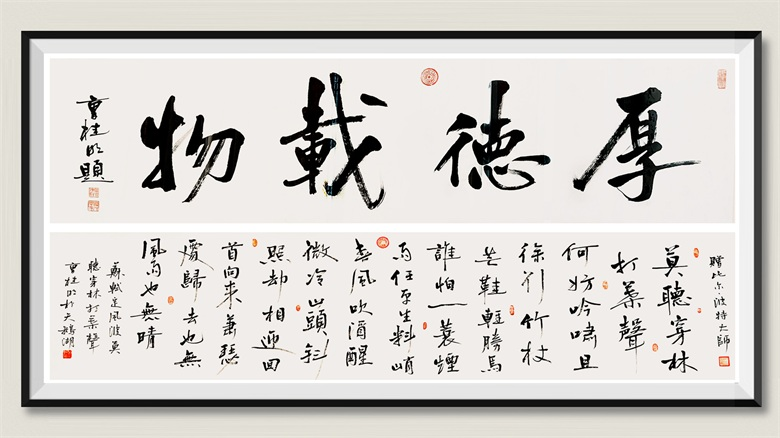 厚德載物
曹桂明題
贈比尔·波特大師
莫聽穿林
打葉聲
何妨吟嘯且
徐行竹杖
芒鞋輕勝馬
誰怕一蓑煙
雨任平生料峭
春風吹酒醒
微冷山頭斜
照却相迎回
首向來蕭瑟
處歸去也無
風雨也無晴
蘇軾定風波莫
聽穿林打葉聲
曹桂明於天鵝湖